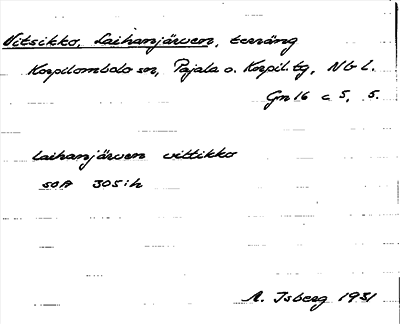 Vitsikko, Laihanjärven, terräng
Korpilombolo sn, Pajala o. Korpil. tg, Nb l.
Gn 16 c 5, 5.
Laihanjärven vittikko
50A 305:h
A. Isberg 1931